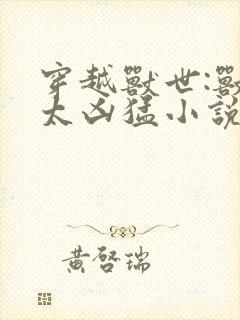 穿越獸世:獸
太凶猛小說
黃啓瑞